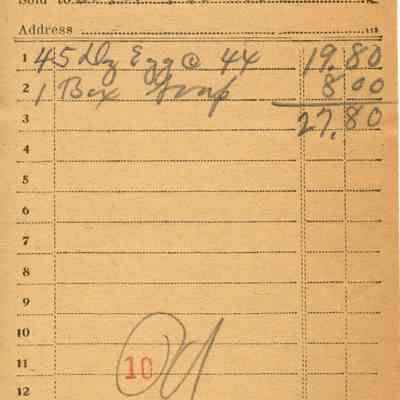 Sold to
Address
1 45 Dz Egg @ 44 19.80
2 1 Box 8 00
3 27.80
4
5
6
7
8
9
10
11 10
12